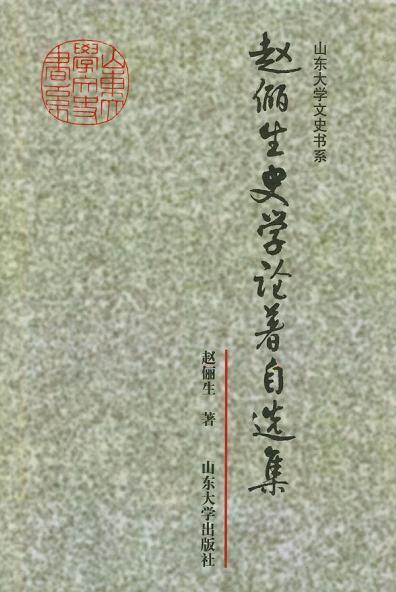 山东大学文史书系
赵俪生史学论著自选集
赵俪生 著
山东大学出版社
山東大學文史書系